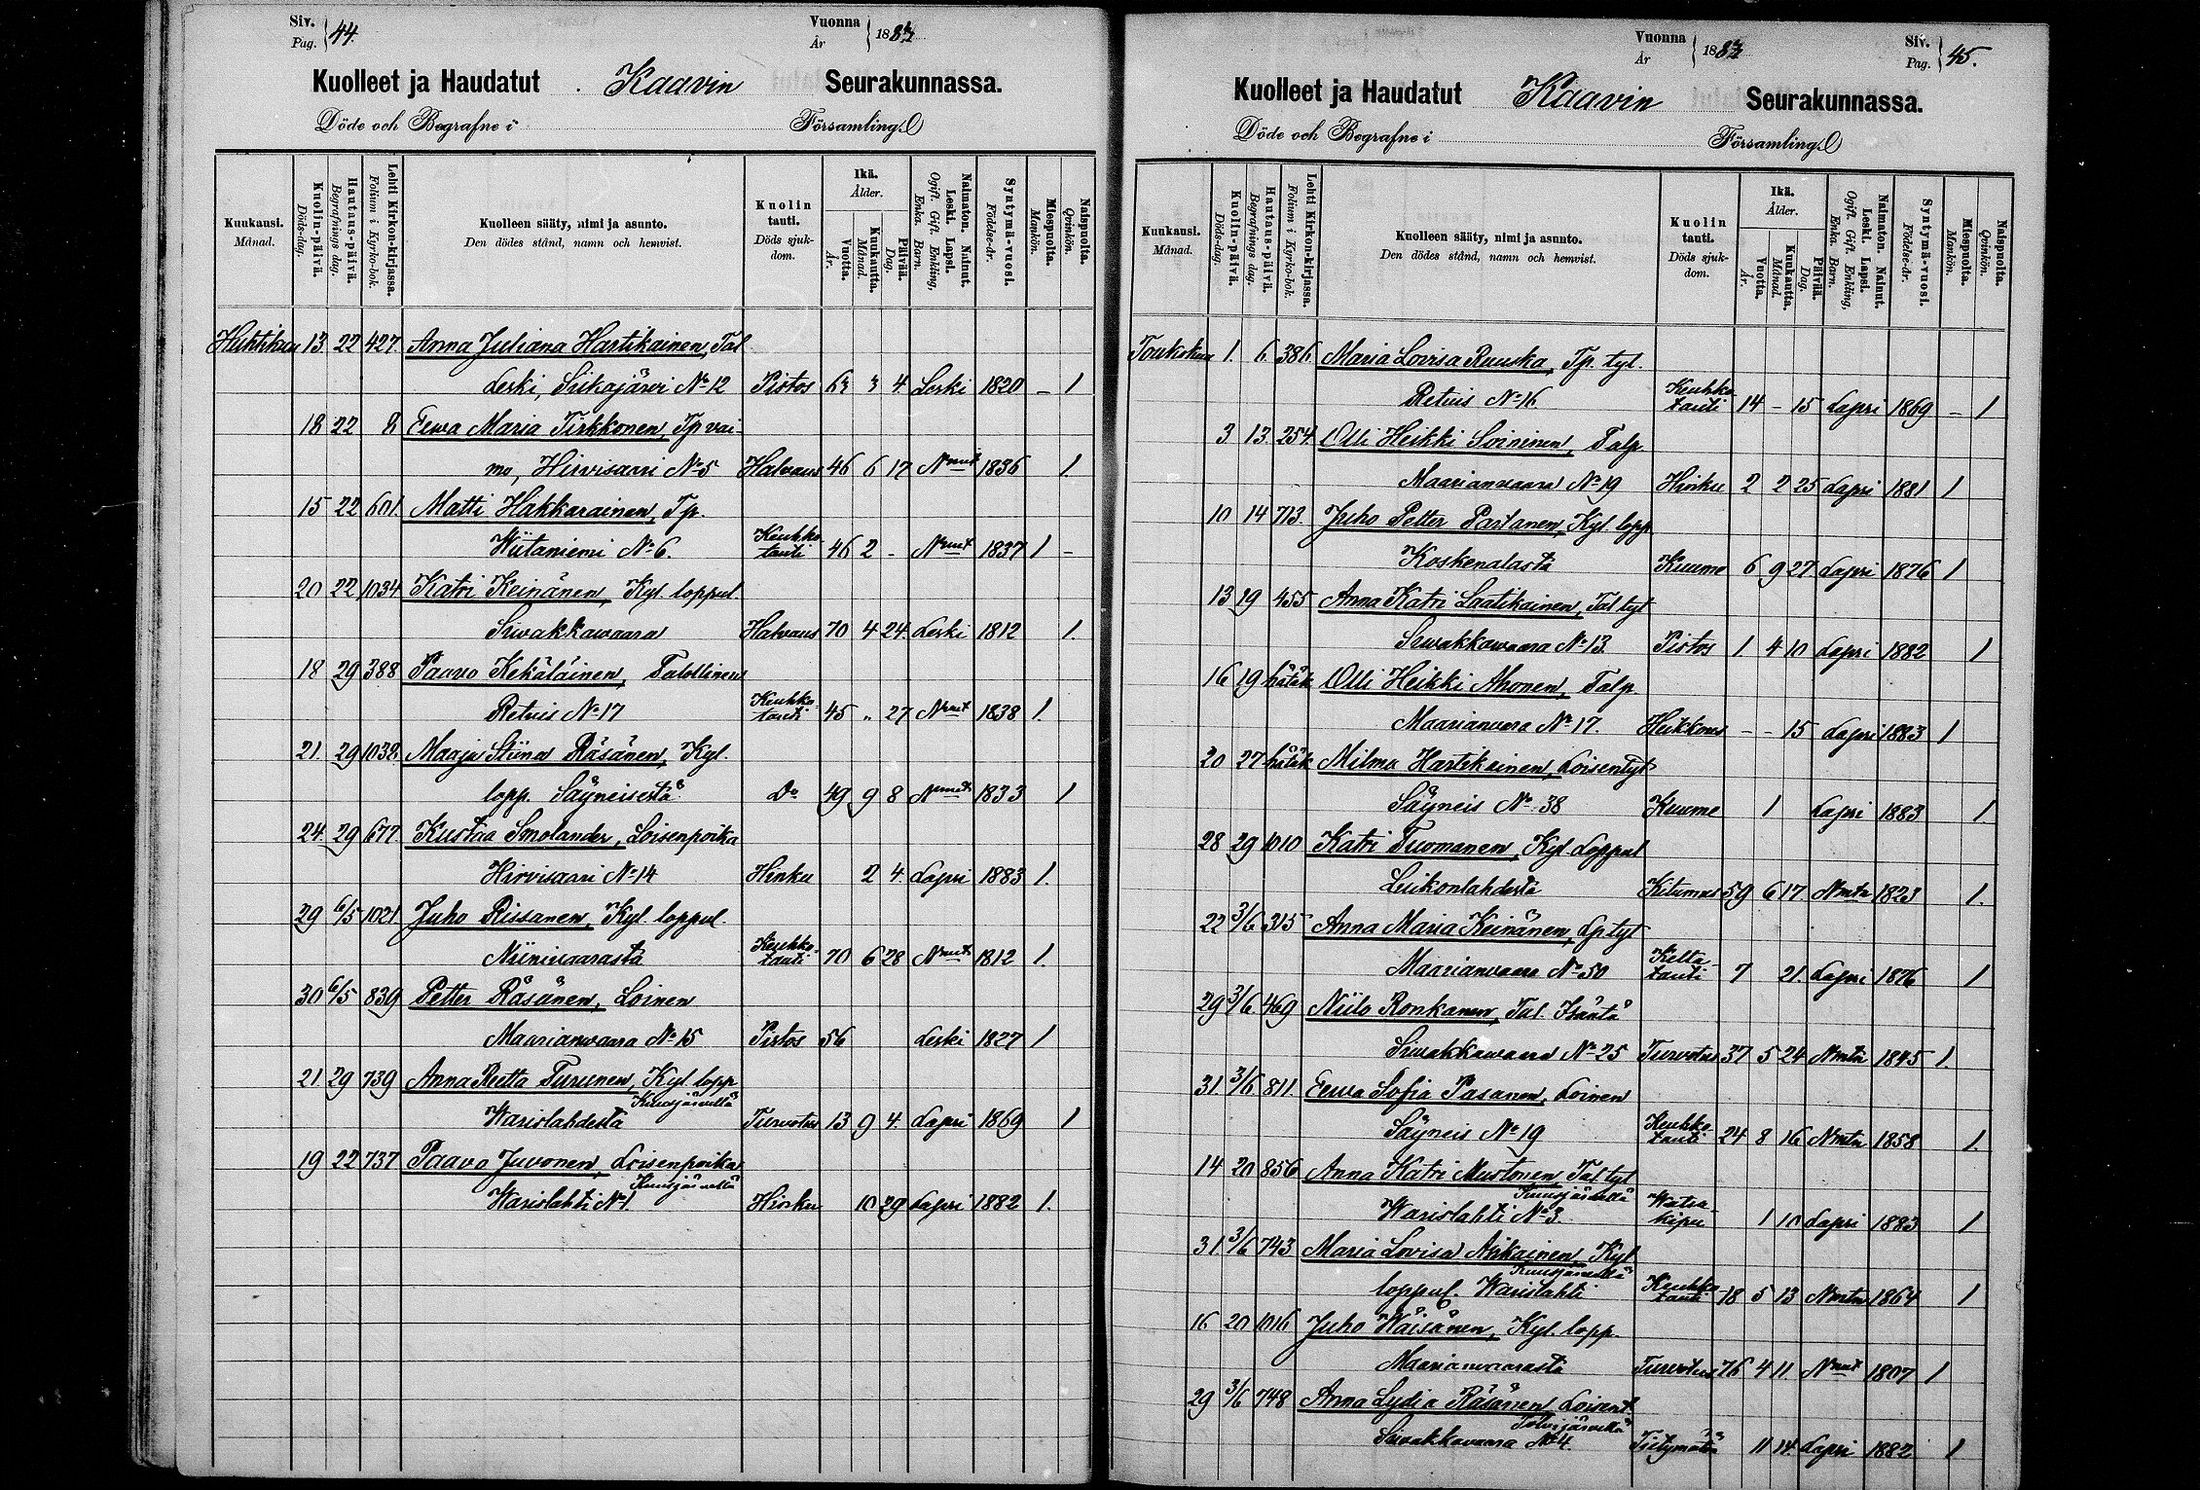 Siv. Pag. 44. Vuonna År 1883
Kuolleet ja Haudatut Kaavin Seurakunnassa.
Döde och Begrafne i Församling.
Kuukausi. Månad. Kuolin-päivä. Döds-dag. Hautaus-päivä. Begrafnings dag. Lehti Kirkon-kirjassa. Folium i Kyrko-bok. Kuolleen sääty, nimi ja asunto. Den dödes stånd, namn och hemvist. Kuolin tauti. Döds sjukdom. Ikä. Ålder. Vuotta. År. Kuukautta. Månad. Päivää. Dag. Naimaton. Nainut. Leski. Lapsi. Ogift. Gift. Enkling, Enka. Barn. Syntymä-vuosi. Födelse-år. Miespuolta. Mankön. Naispuolta. Qvinkön.
Huhtikuu 13. 22 427. Anna Juliana Hartikainen, Tal
Leski, Siikajärvi No 12 Pistos 63 3 4 Leski 1820 – 1
18 22 8 Eewa Maria Tirkkonen, Tp vai-
mo, Hirvisaari No 5 Halvaus 46 6 17 Nnut 1836 1.
15 22 601. Matti Hakkarainen, Tp.
Wiitaniemi No 6. Keuhko-tauti 46 2 - Nnut 1837 1 -
20 22 1034 Katri Keinänen, Kyl. loppul
Siwakkawaara Halvaus 70 4 24. Leski 1812 1.
18 29 388 Paavo Kekäläinen, Talollinen
Retuis No 17 Keuhko-tauti 45 „ 27 Nnut 1838 1.
21. 29 1032 Maaja Stiina Räsänen, Kyl.
lopp. Säyneisestä Do 49 9 8 Nnut 1833 1
24. 29 677. Kustaa Smolander, Loisenpoika
Hirvisaari No 14 Hinku 2 4. Lapsi 1883 1.
29 6/5 1021. Juho Rissanen, Kyl. loppul.
Niinivaarasta Keuhko-tauti 70 6 28 Nnut 1812 1.
30 6/5 839 Petter Räsänen, Loinen
Maarianwaara No 15 Pistos 56 Leski 1827 1
21 29 739 Anna Reetta Turunen, Kyl. lopp
Warislahdesta Kuusjärvellä Turvotus 13 9 4. Lapsi 1869 1
19 22 737 Paavo Juvonen, Loisenpoika
Warislahti No 1. Kuusjärvellä Hinku 10 29 Lapsi 1882 1.
Vuonna År 1883 Siv. Pag. 45.
Kuolleet ja Haudatut Kaavin Seurakunnassa.
Döde och Begrafne i Församling.
Kuukausi. Månad. Kuolin-päivä. Döds-dag. Hautaus-päivä. Begrafnings dag. Lehti Kirkon-kirjassa. Folium i Kyrko-bok. Kuolleen sääty, nimi ja asunto. Den dödes stånd, namn och hemvist. Kuolin tauti. Döds sjukdom. Ikä. Ålder. Vuotta. År. Kuukautta. Månad. Päivää. Dag. Naimaton. Nainut. Leski. Lapsi. Ogift. Gift. Enkling, Enka. Barn. Syntymä-vuosi. Födelse-år. Miespuolta. Mankön. Naispuolta. Qvinkön.
Toukokuu 1. 6. 386 Maria Lovisa Ruuska, Tp. tyt.
Retuis No 16 Keuhko-tauti 14 – 15 Lapsi 1869 – 1
3 13. 254. Olli Heikki Soininen, Talp.
Maarianvaara No 19 Hinku 2 2 25 Lapsi 1881 1
10 14 713. Juho Petter Partanen, Kyl. lopp
Koskenalasta Kuume 6 9 27. Lapsi 1876 1
13 19 455 Anna Katri Laatikainen, Tal tyt
Siwakkawaara No 13. Pistos 1 4 10 Lapsi 1882 1
16 19 hätäk Olli Heikki Ahonen, Talp.
Maarianvara No 17. Heikkous - - 15 Lapsi 1883 1
20 27 hätäk Milma Hartikainen, Loisentyt
Säyneis No 38 Kuume 1 Lapsi 1883 1
28 29 1010 Katri Tuomanen, Kyl. Loppul
Luikonlahdesta Kitumus 59 6 17. Nmtn 1823 1.
22 3/6 315 Anna Maria Keinänen, Lp tyt
Maarianwaara No 50 Kelta-tauti 7 21. Lapsi 1876 1
29 3/6. 469 Niilo Ronkanen, Tal. Isäntä
Siwakkawaara No 25 Turvotus 37 5 24 Nmtn 1845 1.
31 3/6 811. Eewa Sofia Pasanen, Loinen
Säyneis No 19 Keuhko-tauti 24 8 16 Nmtn 1858 1.
14 20 856 Anna Katri Mustonen, Tal tyt
Warislahti No 3. Kuusjärvellä Watsa-kipu 1 10 Lapsi 1883 1
31 3/6 743 Maria Lovisa Asikainen, Kyl
loppul. Warislahti Kuusjärvellä Keuhko-tauti 18 5 13 Nmtn 1864 1
16 20 1016 Juho Wäisänen, Kyl. lopp.
Maarianwaarasta Turvotus 76 4 11 Nnut 1807 1
29 3/6 748 Anna Lydia Räsänen, Loisent.
Siwakkavaara No 4. Polvijärvellä 11 14. Lapsi 1882 1